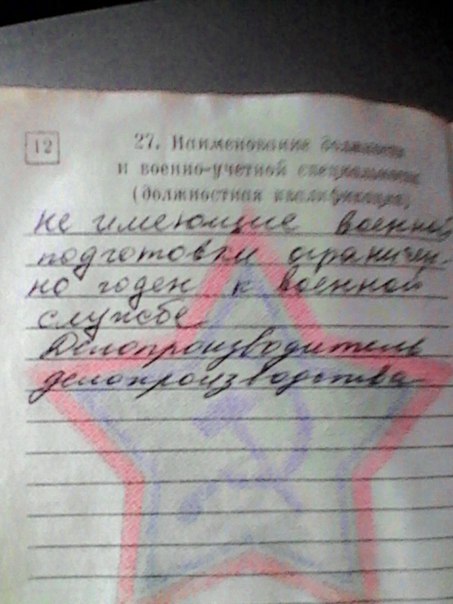 12
27. Наименование должности
и военно-учетной специальности
(должностная квалификация)
не имеющие военной
подготовки ограничен-
но годен к военной
службе.
Делопроизводитель
делопроизводства